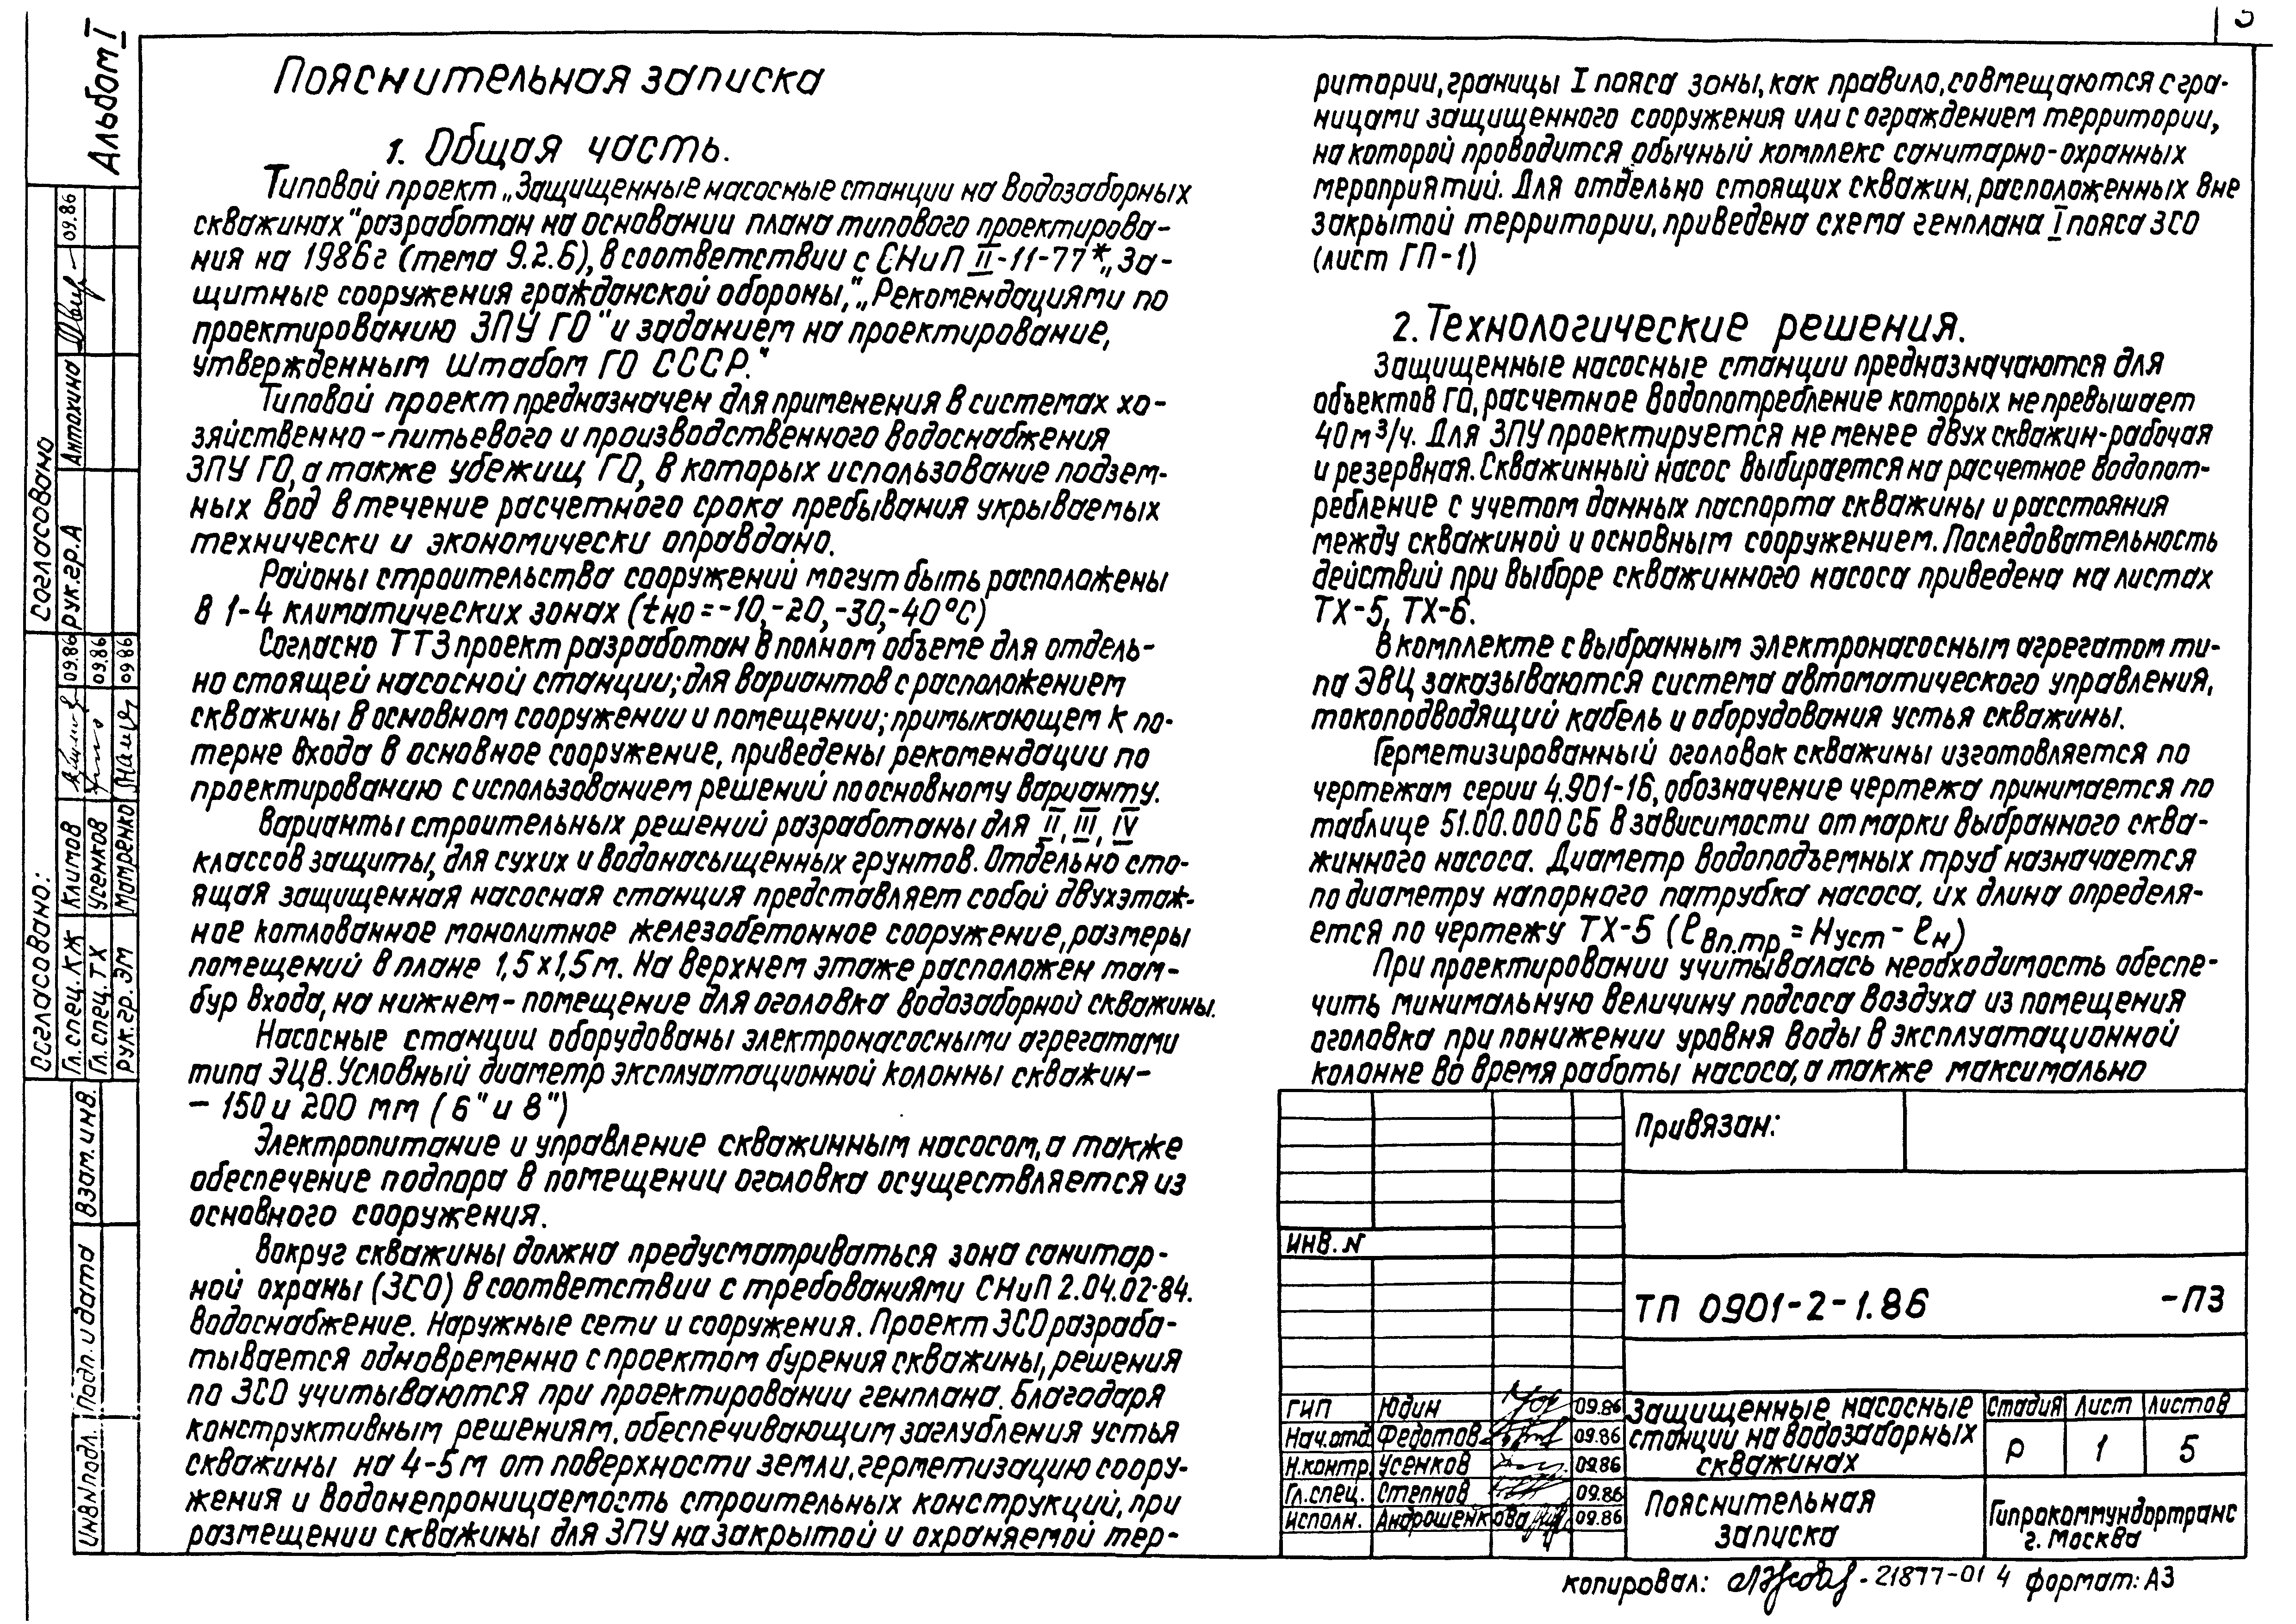 Альбом I
Пояснительная записка
1. Общая часть.
Типовой проект „Защищенные насосные станции на водозаборных
скважинах" разработан на основании плана типового проектирова-
ния на 1986г (тема 9.2.6), в соответствии с СНиП II-11-77*„За-
щитные сооружения гражданской обороны,"„Рекомендациями по
проектированию ЗПУ ГО" и заданием на проектирование,
утвержденным Штабом ГО СССР."
Типовой проект предназначен для применения в системах хо-
зяйственно-питьевого и производственного водоснабжения
ЗПУ ГО, а также убежищ ГО, в которых использование подзем-
ных вод в течение расчетного срока пребывания укрываемых
технически и экономически оправдано.
Районы строительства сооружений могут быть расположены
в 1-4 климатических зонах (tно=-10,-20,-30,-40°С)
Согласно ТТЗ проект разработан в полном объеме для отдель-
но стоящей насосной станции; для вариантов с расположением
скважины в основном сооружении и помещении; примыкающем к по-
терне входа в основное сооружение, приведены рекомендации по
проектированию с использованием решений по основному варианту.
Варианты строительных решений разработаны для II, III, IV
классов защиты, для сухих и водонасыщенных грунтов. Отдельно сто-
ящая защищенная насосная станция представляет собой двухэтаж-
ное котлованное монолитное железобетонное сооружение, размеры
помещений в плане 1,5х1,5м. На верхнем этаже расположен там-
бур входа, на нижнем- помещение для оголовка водозаборной скважины.
Насосные станции оборудованы электронасосными агрегатами
типа ЭЦВ. Условный диаметр эксплуатационной колонны скважин-
- 150 и 200 мм (6" и 8")
Электропитание и управление скважинным насосом, а также
обеспечение подпора в помещении оголовка осуществляется из
основного сооружения.
Вокруг скважины должна предусматриваться зона санитар-
ной охраны (ЗСО) в соответствии с требованиями СНиП 2.04.02-84.
Водоснабжение. Наружные сети и сооружения. Проект ЗСО разраба-
тывается одновременно с проектом бурения скважины, решения
по ЗСО учитываются при проектировании генплана. Благодаря
конструктивным решениям, обеспечивающим заглубления устья
скважины на 4-5м от поверхности земли, герметизацию соору-
жения и водонепроницаемость строительных конструкций, при
размещении скважины для ЗПУ на закрытой и охраняемой тер-
ритории, границы I пояса зоны, как правило, совмещаются с гра-
ницами защищенного сооружения или с ограждением территории,
на которой проводится обычный комплекс санитарно-охранных
мероприятий. Для отдельно стоящих скважин, расположенных вне
закрытой территории, приведена схема генплана I пояса ЗСО
(лист ГП-1)
2. Технологические решения.
Защищенные насосные станции предназначаются для
объектов ГО, расчетное водопотребление которых не превышает
40м³/ч. Для ЗПУ проектируется не менее двух скважин-рабочая
и резервная. Скважинный насос выбирается на расчетное водопот-
ребление с учетом данных паспорта скважины и расстояния
между скважиной и основным сооружением. Последовательность
действий при выборе скважинного насоса приведена на листах
ТХ-5, ТХ-6.
В комплекте с выбранным электронасосным агрегатом ти-
па ЭВЦ заказываются система автоматического управления,
токоподводящий кабель и оборудования устья скважины.
Герметизированный оголовок скважины изготовляется по
чертежам серии 4.901-16, обозначение чертежа принимается по
таблице 51.00.000СБ в зависимости от марки выбранного сква-
жинного насоса. Диаметр водоподъемных труб назначается
по диаметру напорного патрубка насоса, их длина определя-
ется по чертежу ТХ-5 (ℓвп.тр=Hуст-ℓн)
При проектировании учитывалась необходимость обеспе-
чить минимальную величину подсоса воздуха из помещения
оголовка при понижении уровня воды в эксплуатационной
колонне во время работы насоса, а также максимально
Привязан:
Инв. N
ТП 0901-2-1.86 -ПЗ
ГИП Юдин 09.86
Нач.отд. Федотов 09.86
Н.контр. Усенков 09.86
Гл.спец. Степнов 09.86
Исполн. Андрошенкова 09.86
Защищенные насосные
станции на водозаборных
скважинах
Стадия Лист Листов
Р 1 5
Пояснительная
записка
Гипрокоммундортранс
г. Москва
Копировал: 21877-01 4 формат: А3
Согласовано
Рук.гр.А Антохина 09.86
Согласовано:
Гл.спец.КЖ Климов 09.86
Гл.спец.ТХ Усенков 09.86
Рук.гр.ЭМ Мамренко 09.86
Взам.инв.
Подп. и дата
Инв N подл.